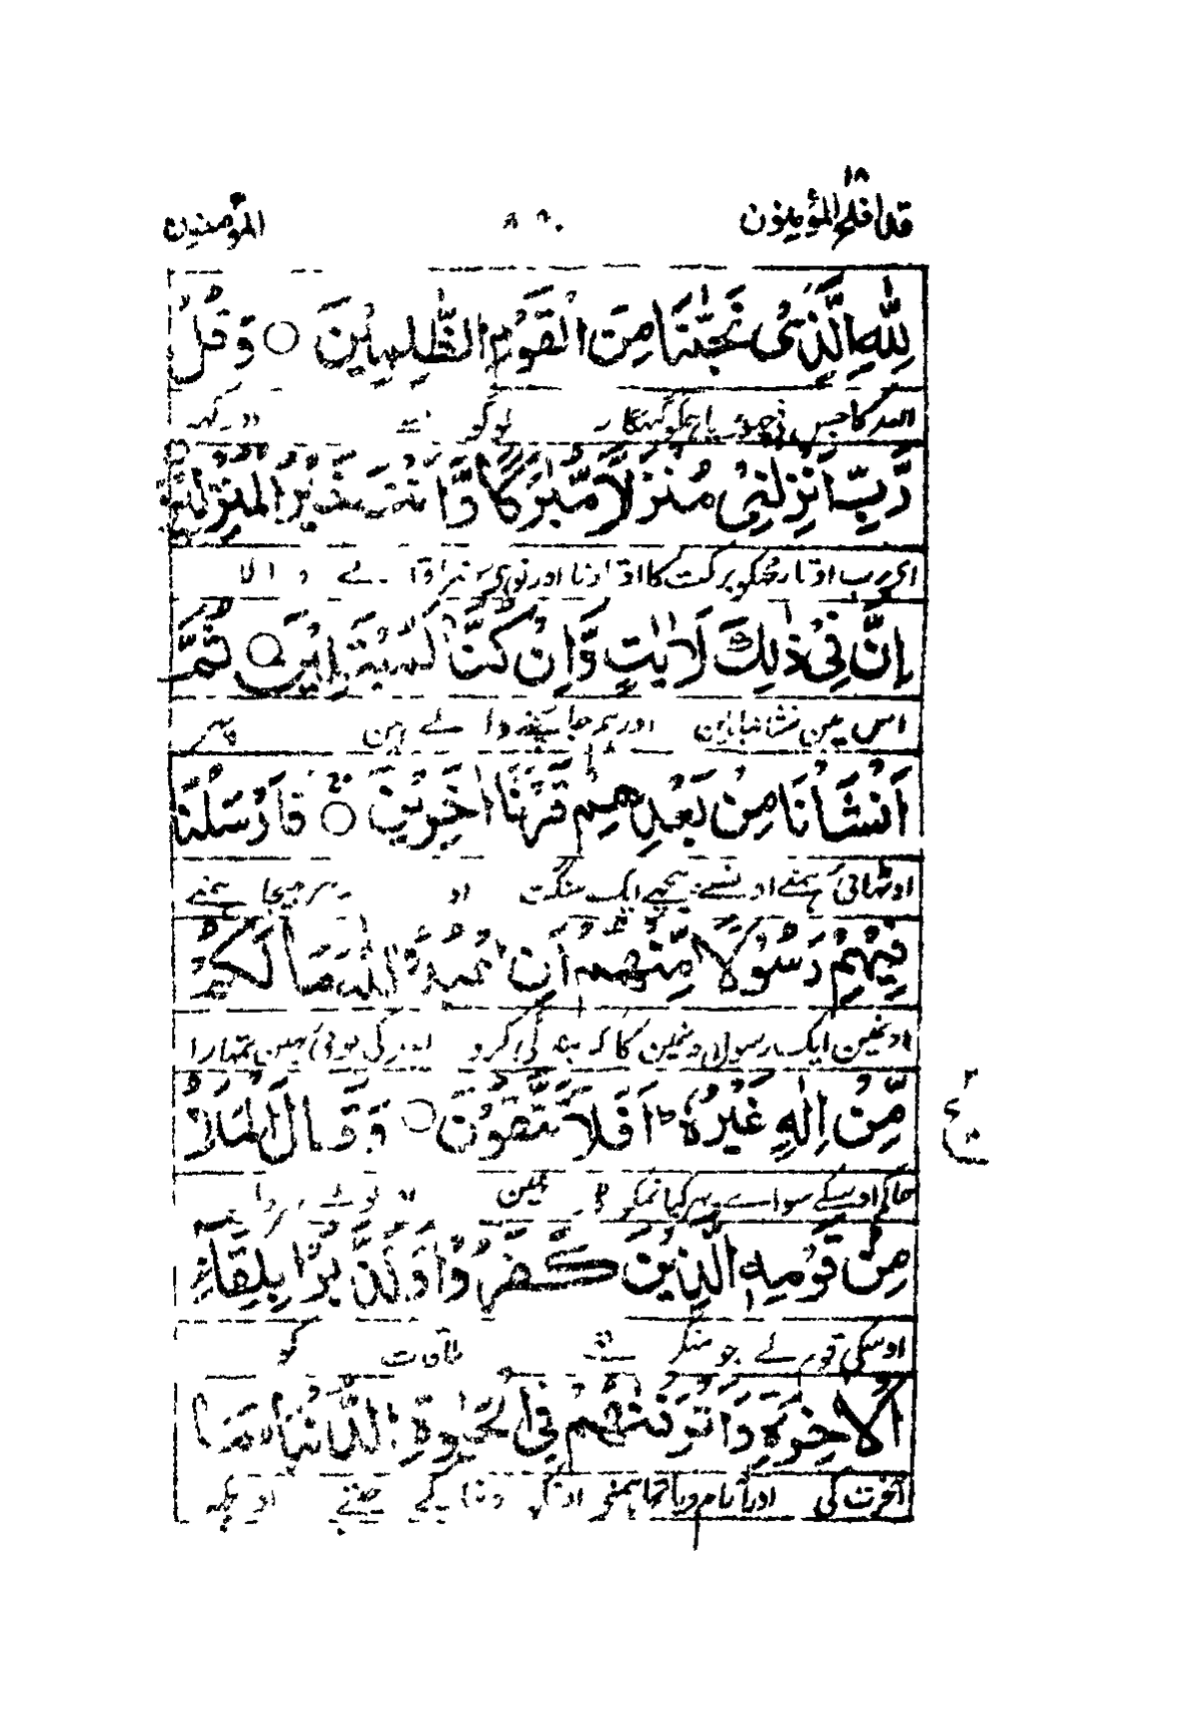 ۱۸
قد افلح المؤمنون ۸۸۰ المؤمنین
لِلّٰهِ الَّذِیْ نَجّٰىنَا مِنَ الْقَوْمِ الظّٰلِمِیْنَ ○ وَ قُلْ
اللہ کا جس نے ہمکو گنہگار لوگو سے اور کہہ
رَّبِّ اَنْزِلْنِیْ مُنْزَلًا مُّبٰرَكًا وَّ اَنْتَ خَیْرُ الْمُنْزِلِیْنَ
ای رب اوتار مجکو برکت کا اوتارنا اور تو ہی والا
اِنَّ فِیْ ذٰلِكَ لَاٰیٰتٍ وَّ اِنْ كُنَّا لَمُبْتَلِیْنَ ○ ثُمَّ
اس مین نشانیاہین اور ہم جانچنے والے ہین پہر
اَنْشَاْنَا مِنْۢ بَعْدِهِمْ قَرْنًا اٰخَرِیْنَ ○ فَاَرْسَلْنَا
اوٹہائی ہمنے اونسے پیچہے ایک سنگت او پہر بہیجا ہمنے
فِیْهِمْ رَسُوْلًا مِّنْهُمْ اَنِ اعْبُدُوا اللّٰهَ مَا لَكُمْ
اونمین ایک رسول اونمین کا کہ بندگی کرو اللہ کی کوئی نہین تمہارا
مِّنْ اِلٰهٍ غَیْرُهٗ ؕ اَفَلَا تَتَّقُوْنَ ○ وَ قَالَ الْمَلَاُ
۲
ع
حاکم اوسکے سواے پہر کیا تمکو ڈر نہین اور بولے سردار
مِنْ قَوْمِهِ الَّذِیْنَ كَفَرُوْا وَ كَذَّبُوْا بِلِقَآءِ
اوسکی قوم کے جو منکر تہے ملاقات کو
الْاٰخِرَةِ وَ اَتْرَفْنٰهُمْ فِی الْحَیٰوةِ الدُّنْیَا ۙ مَا
آخرت کی اور آرام دیا تہا ہمنے اونکو دنیا کے جینے اور کچہہ